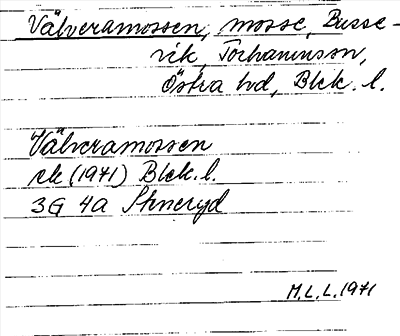 Välveramossen, mosse, Busse-
vik, Torhamnsson,
Östra hd, Blek. l.
Välveramossen
ek (1971) Blek. l.
3G 4a Stneryd
M.L.L. 1971